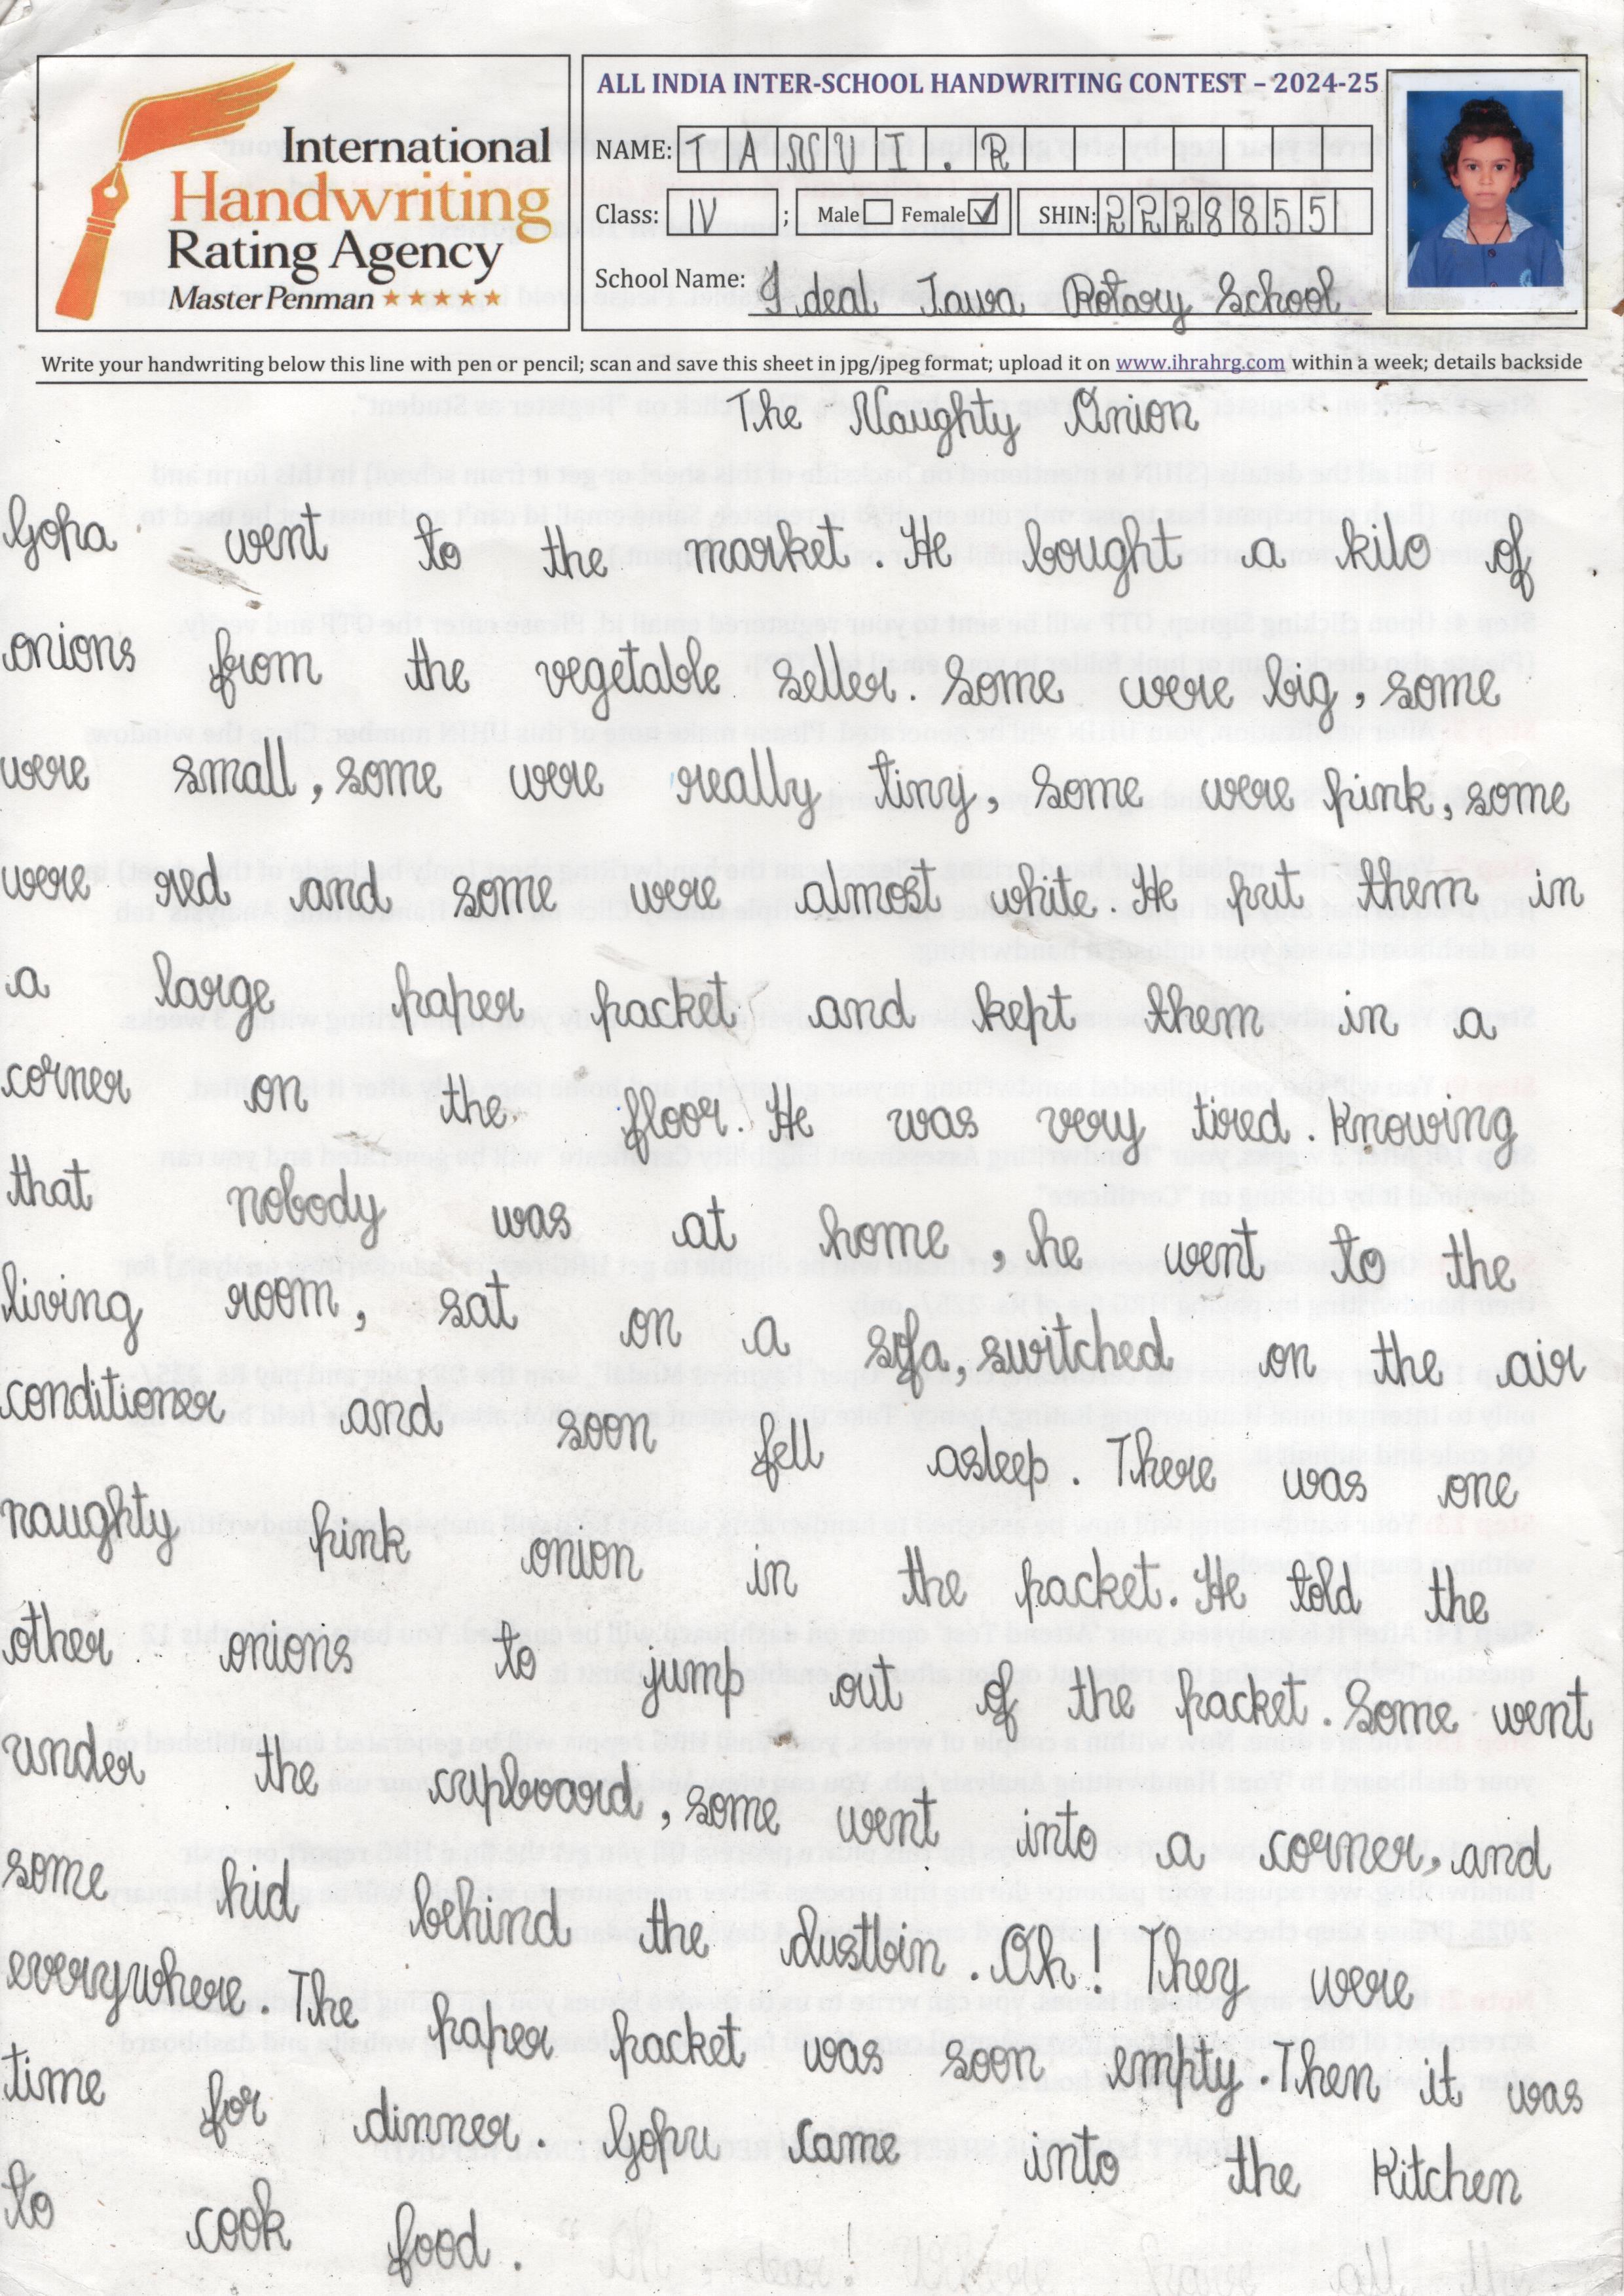 International
Handwriting
Rating Agency
Master Penman
ALL INDIA INTER-SCHOOL HANDWRITING CONTEST – 2024-25
NAME: TANVI.R
Class: IV ; Male Female ✓ SHIN: 2228855
School Name: Ideal Jawa Rotary School
Write your handwriting below this line with pen or pencil; scan and save this sheet in jpg/jpeg format; upload it on www.ihrahrg.com within a week; details backside
The Naughty Onion
Gopa went to the market. He bought a kilo of
onions from the vegetable seller. Some were big, some
were small, some were really tiny, some were pink, some
were red and some were almost white. He put them in
a large paper packet and kept them in a
corner on the floor. He was very tired. Knowing
that nobody was at home, he went to the
living room, sat on a sofa, switched on the air
conditioner and soon fell asleep. There was one
naughty pink onion in the packet. He told the
other onions to jump out of the packet. Some went
under the cupboard, some went into a corner, and
some hid behind the dustbin. Oh! They were
everywhere. The paper packet was soon empty. Then it was
time for dinner. Gopu came into the kitchen
to cook food.